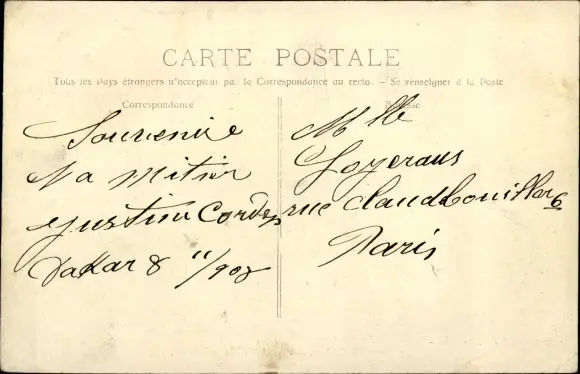 CARTE POSTALE
Tous les Pays étrangers n'acceptent pas la Correspondance au recto. - Se renseigner à la Poste
Correspondance
Adresse
Souvenire
Justin Cordes
Dakar 8 11/908
Mlle
Loyeraus
rue Claud
Paris